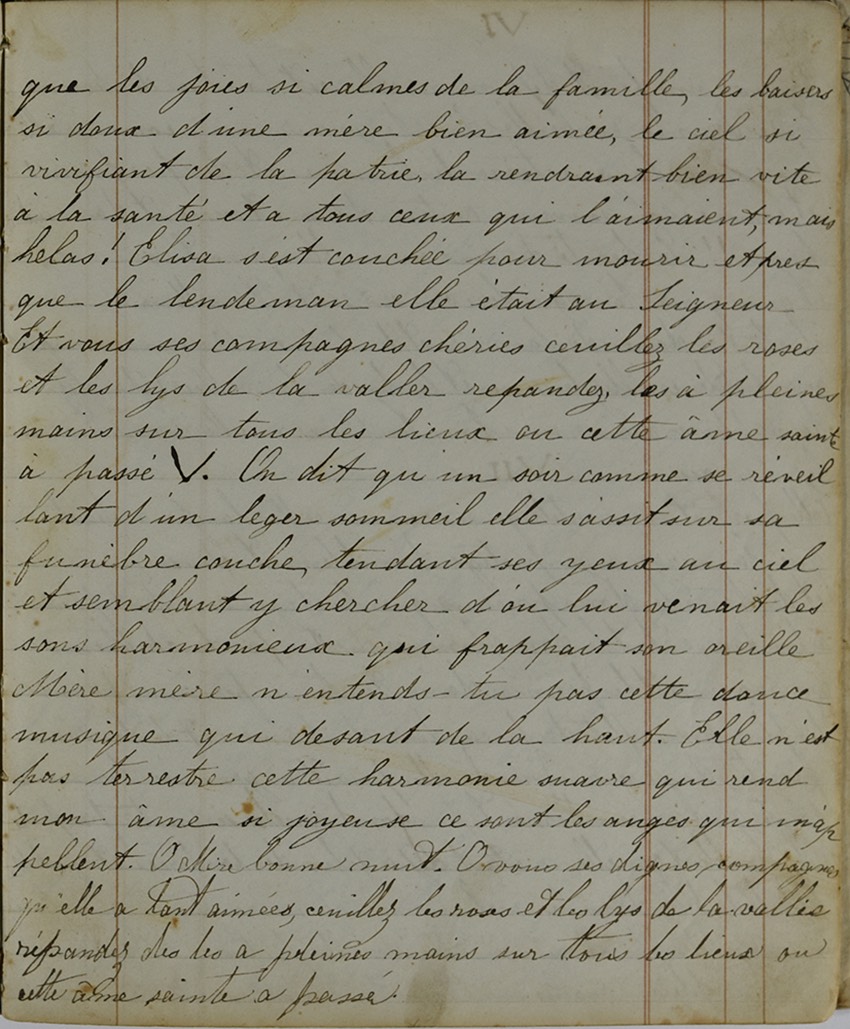 que les joies si calmes de la famille, les baisers
si doux d'une mére bien aimée, le ciel si
vivifiant de la patrie, la rendraint bien vite
à la santé et a tous ceux qui l'aimaient, mais
helas! Elisa s'est couchée pour mourir et pres
que le lendeman elle était au Seigneur
Et vous ses compagnes chéries ceuillez les roses
et les lys de la valler repandez, les à pleines
mains sur tous les lieux ou cette âme sainte
à passé V. On dit qu'un soir comme se réveil
lant d'un leger sommeil elle s'assit sur sa
funèbre couche, tendant ses yeux au ciel
et semblant y chercher d'ou lui venait les
sons harmonieux qui frappait son oreille
Mère mère n'entends-tu pas cette douce
musique qui desant de la haut. Elle n'est
pas terrestre cette harmonie suavre qui rend
mon âme si joyeuse ce sont les anges qui m'ap
pellent. O Mère bonne nuit. O vous ses dignes compagnes
qu'elle a tant aimées, ceuillez les roses et les lys de la vallée
répandez des les a pleines mains sur tous les lieux ou
cette âme sainte a passé.